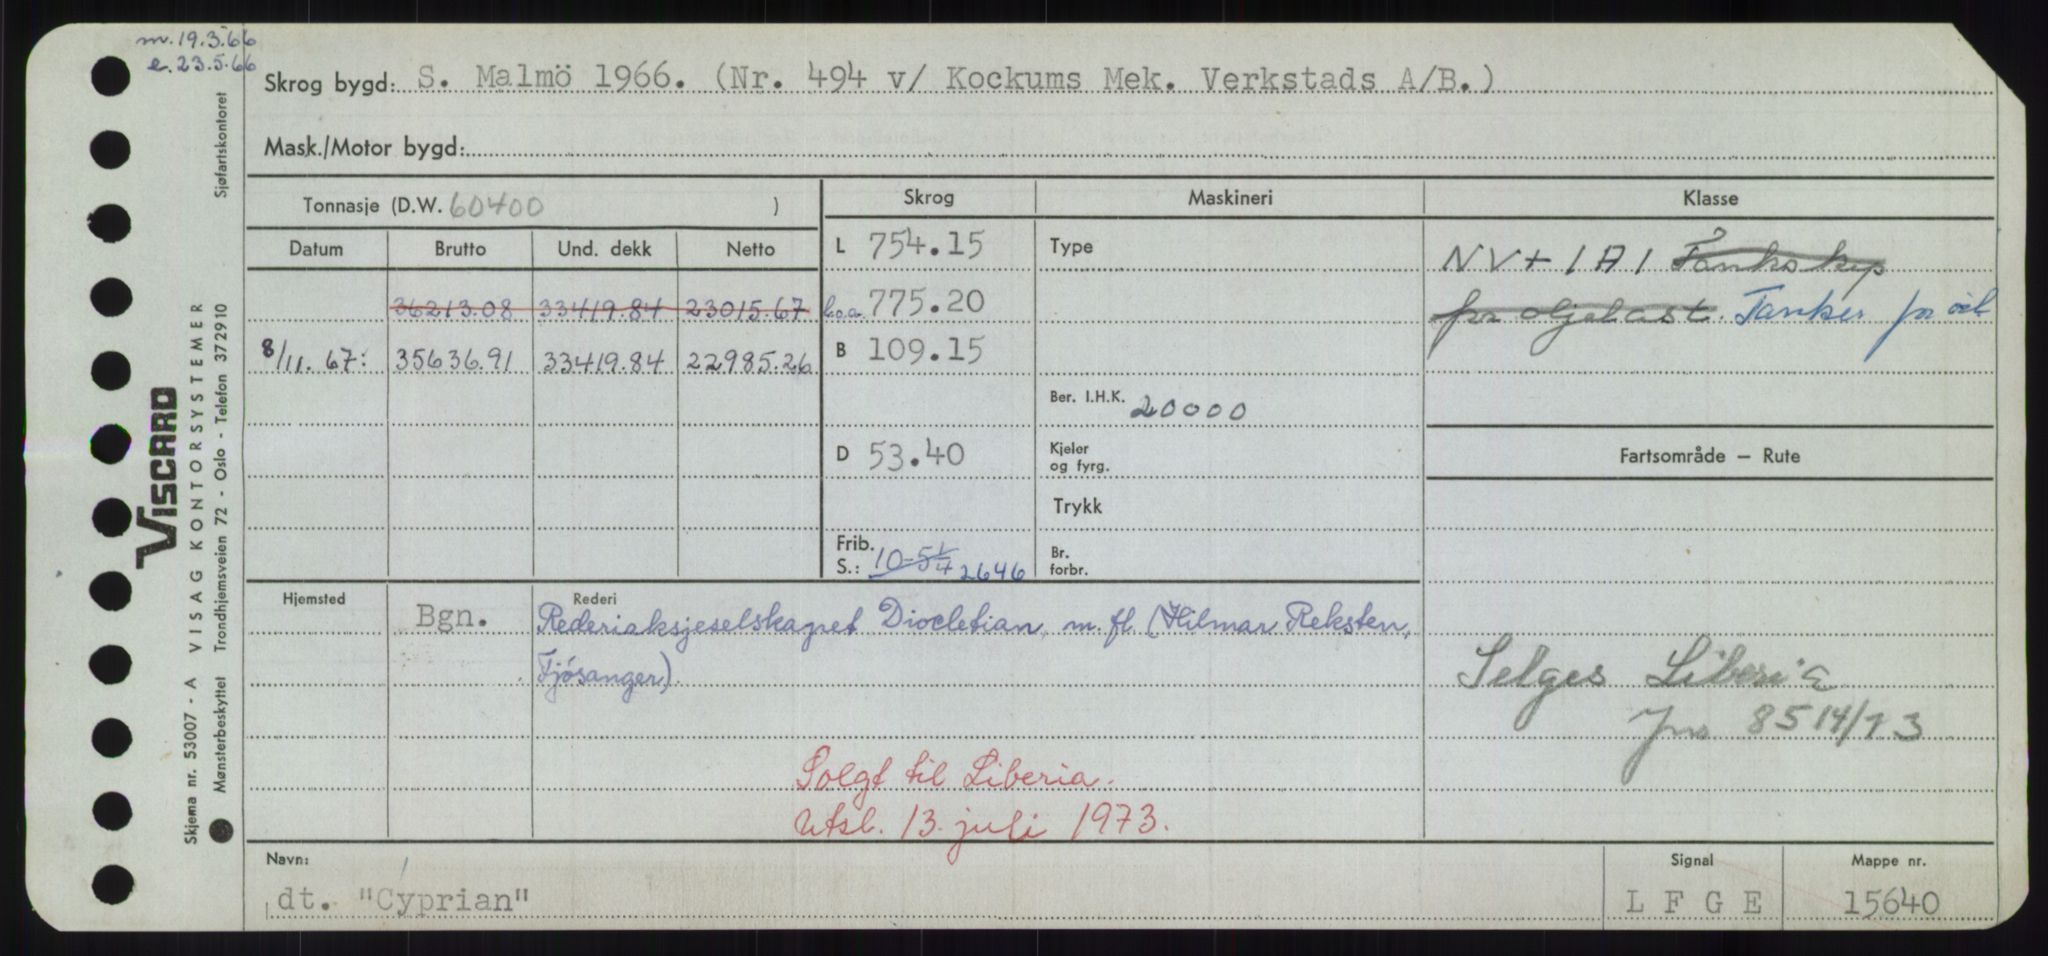 m. 19.3.66
e. 23.5.66
Skrog bygd: S. Malmö 1966. (Nr. 494 v/ Kockums Mek. Verkstads A/B.)
Mask./Motor bygd:
Tonnasje (D.W. 60400 )
Datum Brutto Und. dekk Netto
36213.08 33419.84 23015.67
8/11. 67: 35636.91 33419.84 22985.26
Skrog
L 754.15
l.o.a. 775.20
B 109.15
D 53.40
Frib.
S.: 10-5 1/4 2646
Maskineri
Type
Ber. I.H.K. 20000
Kjeler
og fyrg.
Trykk
Br.
forbr.
Klasse
NV + 1A1 Tankskip
for oljelast. Tanker for oil
Fartsområde — Rute
Selges Liberia
Jnr 8514/73
Hjemsted Rederi
Bgn. Rederiaksjeselskapet Diocletian, m. fl. (Hilmar Reksten,
Fjøsanger).
Solgt til Liberia.
Utsl. 13. juli 1973.
Navn: Signal Mappe nr.
dt. "Cyprian" L F G E 15640
VISCARD
Skjema nr. 53007 - A VISAG KONTORSYSTEMER
Mønsterbeskyttet Trondhjemsveien 72 - Oslo - Telefon 372910 Sjøfartskontoret